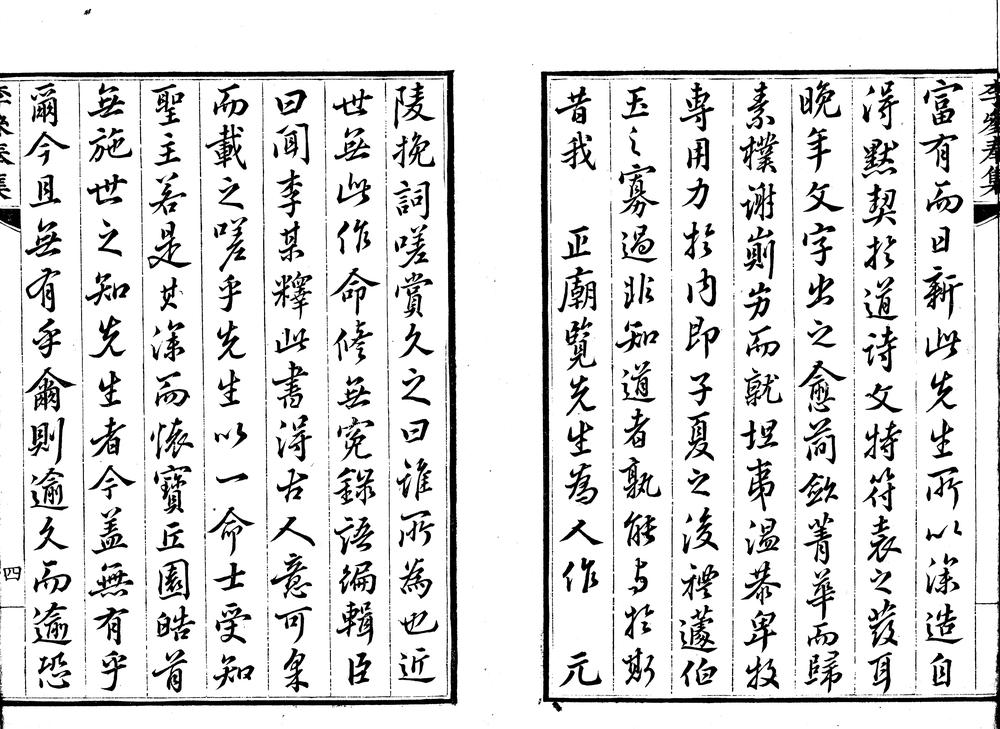 富有而日新此先生所以深造自
得默契於道詩文特符表之發耳
晚年文字出之愈簡斂菁華而歸
素樸謝崱屴而就坦夷溫恭卑牧
專用力於內即子夏之後禮蘧伯
玉之寡過非知道者孰能與於斯
昔我　正廟覽先生為人作　元
陵挽詞嗟賞久之曰誰所為也近
世無此作命修無冤錄語編輯臣
曰聞李某釋此書得古人意可錄
而載之嗟乎先生以一命士受知
聖主若是其深而懷寶丘園皓首
無施世之知先生者今蓋無有乎
爾今且無有乎爾則逾久而逾恐
四